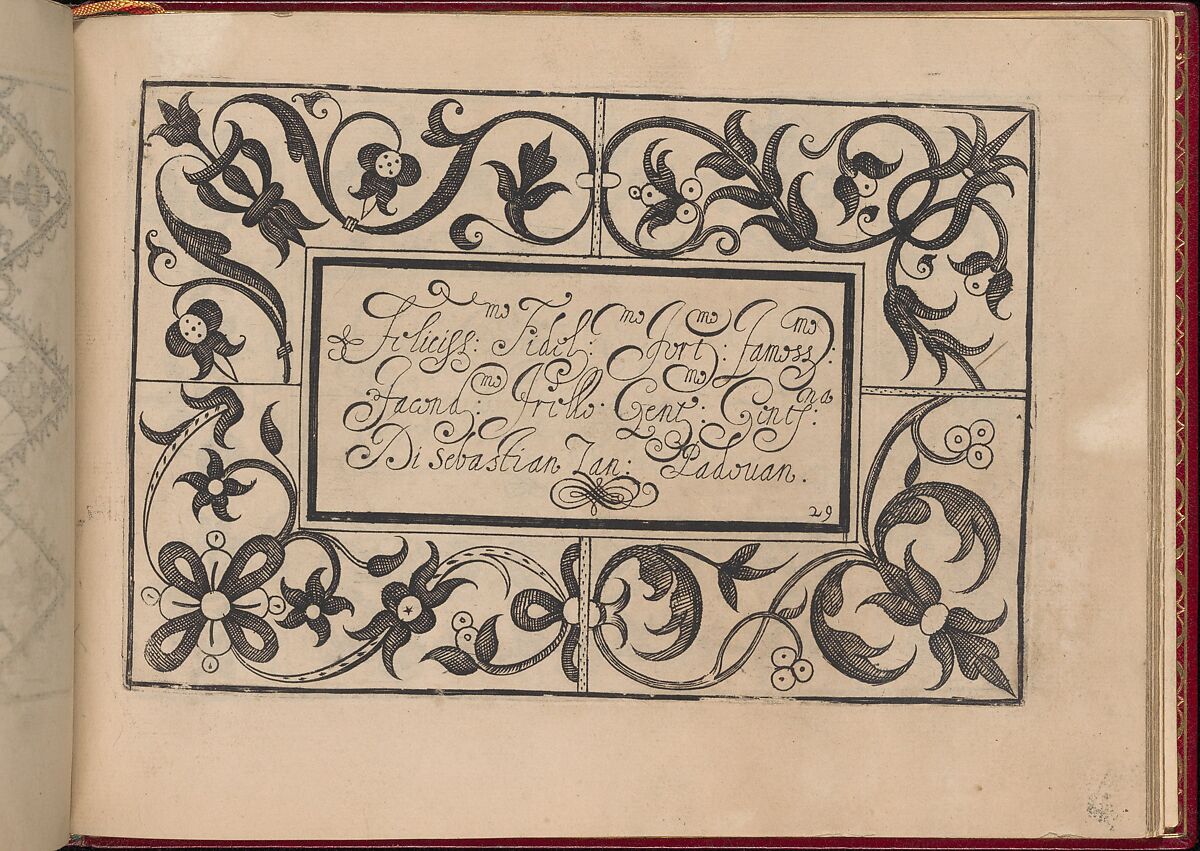 Feliciss:mo Fidel:mo Fort:mo Famoss:mo
Facond:mo Grillo. Gent:mo Gents:na
Di Sebastian Zan: Padouan.
29